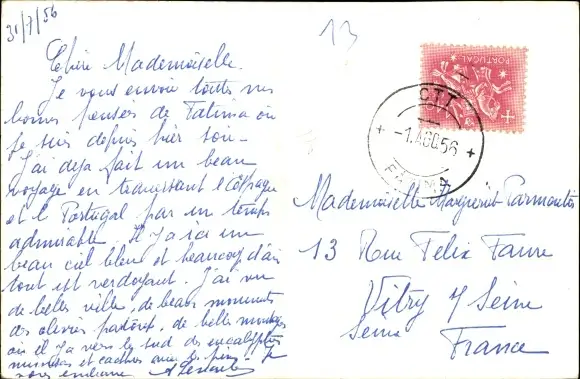 31/7/56
13
Chère Mademoiselle.
Je vous envoie toutes mes
bonnes pensées de Fatima où
je suis depuis hier soir
J'ai déjà fait un beau
voyage en traversant l'Espagne
et le Portugal par un temps
admirable. Il y a ici un
beau ciel bleu et beaucoup d'air
tout est verdoyant. J'ai vu
de belles villes, de beaux monuments
des oliviers partout, de belles montagnes
où il y a vers le sud des eucalyptus
et cactus
vous embrasse
PORTUGAL
CTT
-1.AGO.56
Mademoiselle Parmentier
13 Rue Felix Faure
Vitry s/ Seine
Seine
France